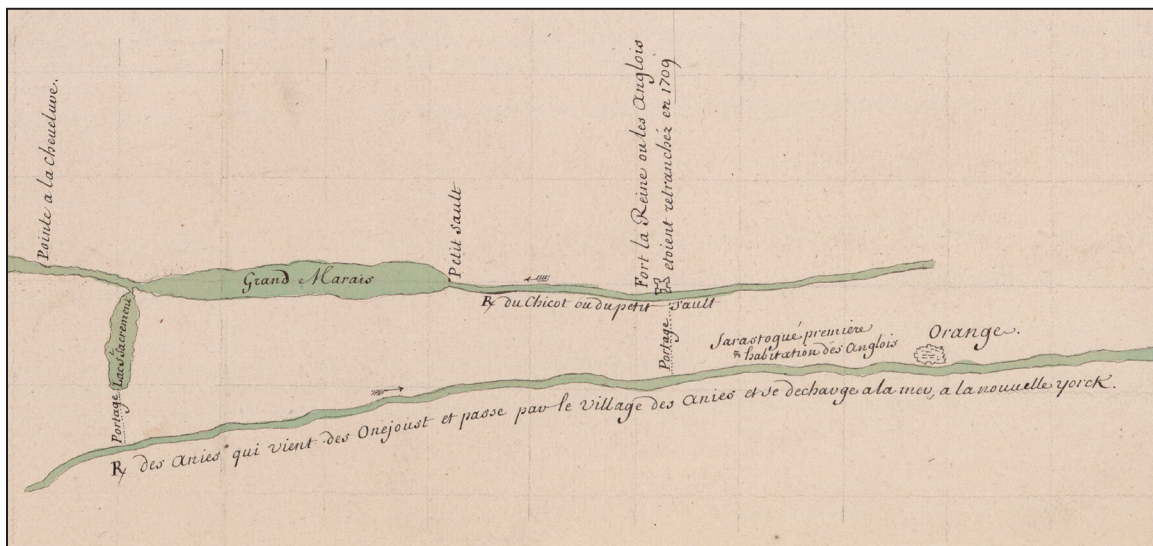 Pointe a la Cheueluve.
Grand Marais
Petit Sault
Fort la Reine ou les Anglois
etoient retranchez en 1709
Rr du Chicot ou du petit Sault
Portage
Lac St Sacrement
Portage
Sarastogué première
habitation des Anglois
Orange.
Rr des Anies qui vient des Onejoust et passe par le Village des Anies et se decharge a la mer, a la nouuelle yorck.